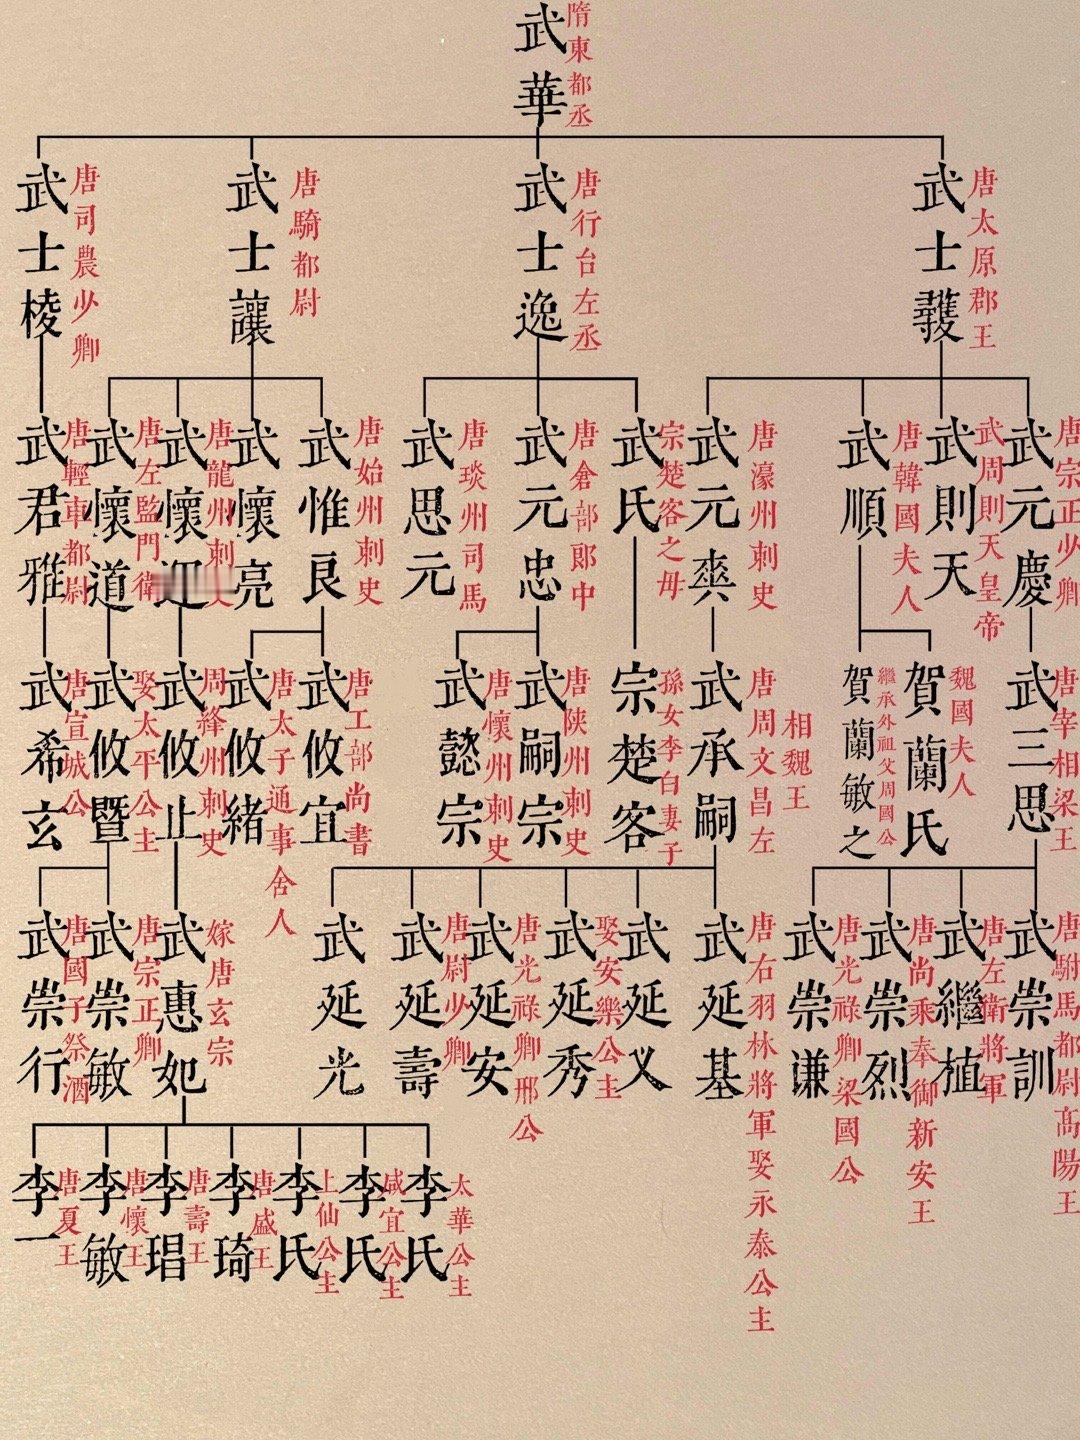 武華
隋東都丞
武士棱
唐司農少卿
武士讓
唐騎都尉
武士逸
唐行台左丞
武士彠
唐太原郡王
武君雅
唐輕車都尉
武懷道
唐左監門衛
武懷
唐龍州刺史
武懷亮
武惟良
唐始州刺史
武思元
唐琰州司馬
武元忠
唐倉部郎中
武氏
宗楚客之母
武元爽
唐濠州刺史
武順
唐韓國夫人
武則天
武周則天皇帝
武元慶
唐宗正少卿
武希玄
唐宣城公
武攸暨
娶太平公主
武攸止
周絳州刺史
武攸緒
唐太子通事舍人
武攸宜
唐工部尚書
武懿宗
唐懷州刺史
武嗣宗
唐陝州刺史
宗楚客
孫女李白妻子
武承嗣
唐周文昌左
相魏王
賀蘭敏之
繼承外祖父周國公
賀蘭氏
魏國夫人
武三思
唐宰相梁王
武崇行
唐國子祭酒
武崇敏
唐宗正卿
武惠妃
嫁唐玄宗
武延光
武延壽
唐尉少卿
武延安
唐光祿卿邢公
武延秀
娶安樂公主
武延义
武延基
唐右羽林將軍娶永泰公主
武崇谦
唐光祿卿梁國公
武崇烈
唐尚乘奉御新安王
武繼植
唐左衛將軍
武崇訓
唐駙馬都尉高陽王
李一
唐夏王
李敏
唐懷王
李琩
唐壽王
李琦
唐盛王
李氏
上仙公主
李氏
咸宜公主
李氏
太華公主